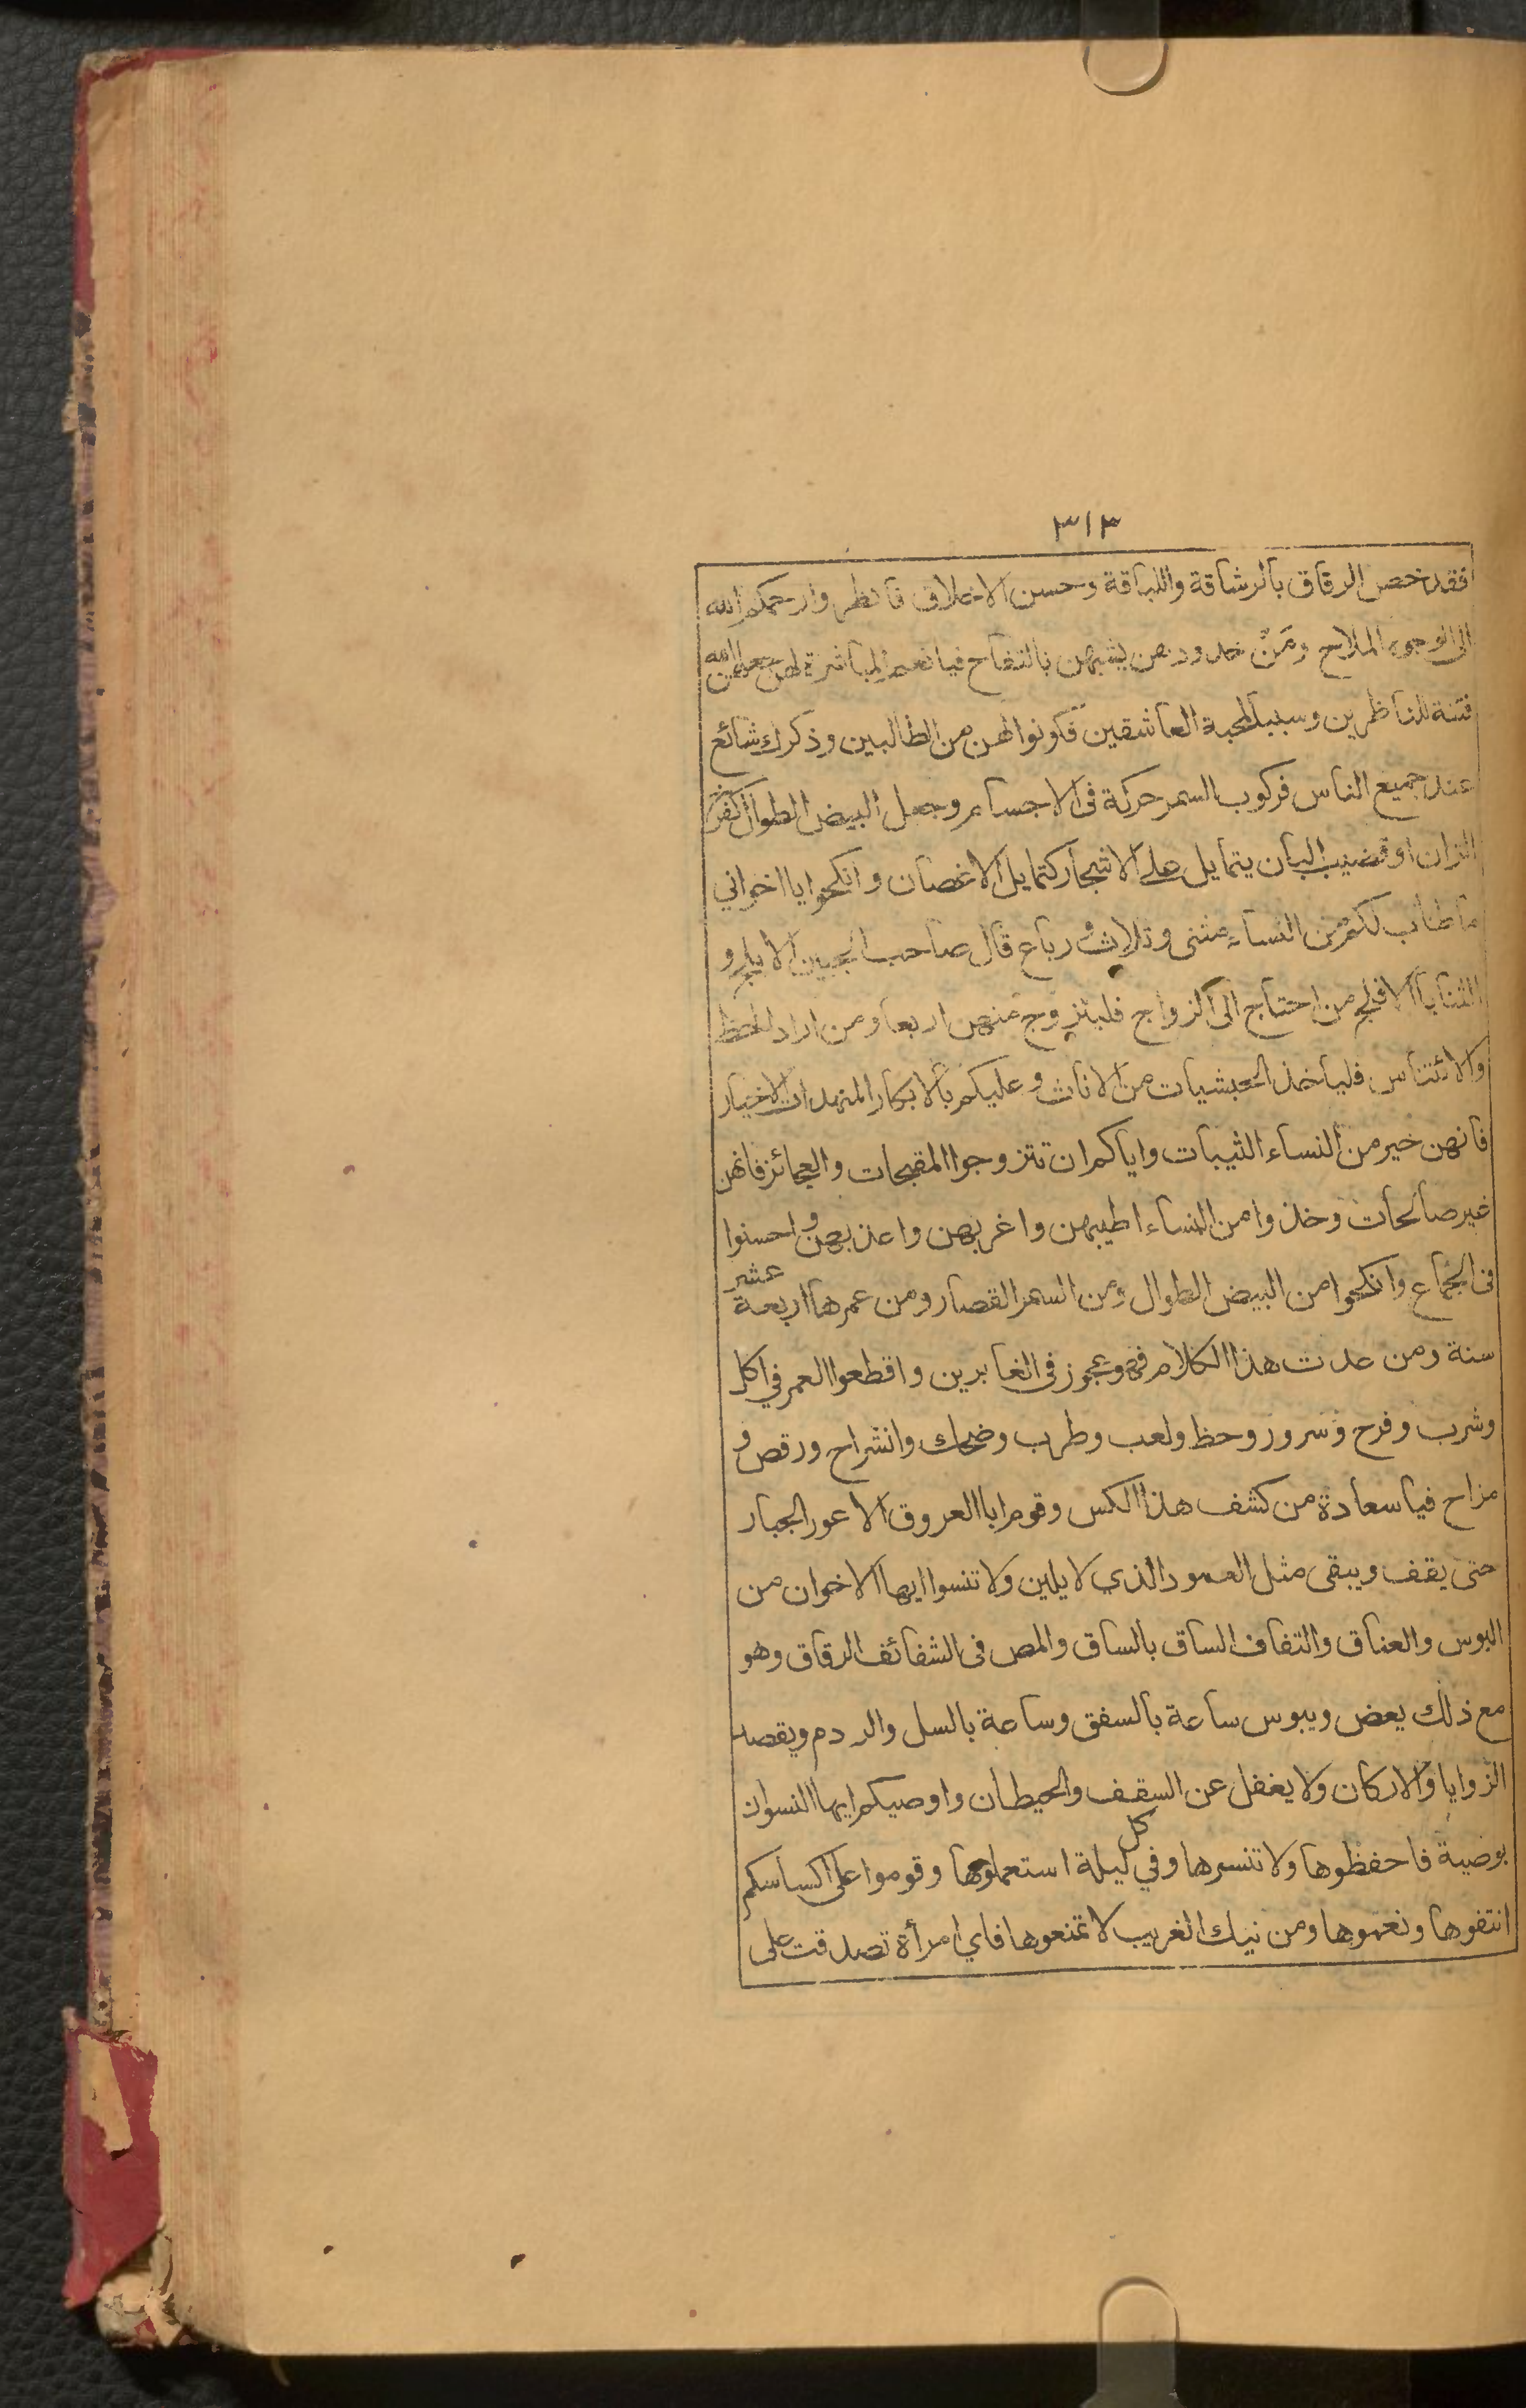 ٣١٣
فقد خص الرقاق بالرشاقة واللباقة وحسن الاخلاق فانظروا رحمكم الله
الى الوجوه الملاح ومن خدودهن يشبهن بالتفاح فيا نعم المباشرة لهن جعلهن الله
فتنة للناظرين وسببا لمحبة العاشقين فكونوا لهن من الطالبين وذكرك شائع
عند جميع الناس فركوب السمر حركة في الاجسام وجعل البيض الطوال
الزان او قضيب البان يتمايل على الاشجار كتمايل الاغصان وانكحوا يا اخواني
ما طاب لكم من النساء مثنى وثلاث ورباع قال صاحب الجبين الابلج و
الثنايا الافلج من احتاج الى الزواج فليتزوج منهن اربعا ومن اراد الحظ
والائتناس فلياخذ الحبشيات من الاناث وعليكم بالابكار المنهدات الاخيار
فانهن خير من النساء الثيبات واياكم ان تتزوجوا المقبحات والعجائز فانهن
غير صالحات وخذوا من النساء اطيبهن واغربهن واعذبهن واحسنوا
فى الجماع وانكحوا من البيض الطوال ومن السمر القصار ومن عمرها اربعة عشر
سنة ومن عدت هذا الكلام فهو عجوز فى الغابرين واقطعوا العمر في اكل
وشرب وفرح وسرور وحظ ولعب وطرب وضحك وانشراح ورقص و
مزاح فيا سعادة من كشف هذا الكس وقوم ابا العروق الاعور الجبار
حتى يقف ويبقى مثل العمود الذي لا يلين ولا تنسوا ايها الاخوان من
البوس والعناق والتفاف الساق بالساق والمص فى الشفائف الرقاق وهو
مع ذلك يعض ويبوس ساعة بالسفق وساعة بالسل والردم ويقصد
الزوايا والاركان ولا يغفل عن السقف والحيطان واوصيكم ايها النسوان
بوصية فاحفظوها ولا تنسوها وفي كل ليلة استعملوها وقوموا على اكساسكم
انتفوها ونعموها ومن نيك الغريب لا تمنعوها فاي امرأة تصدقت على